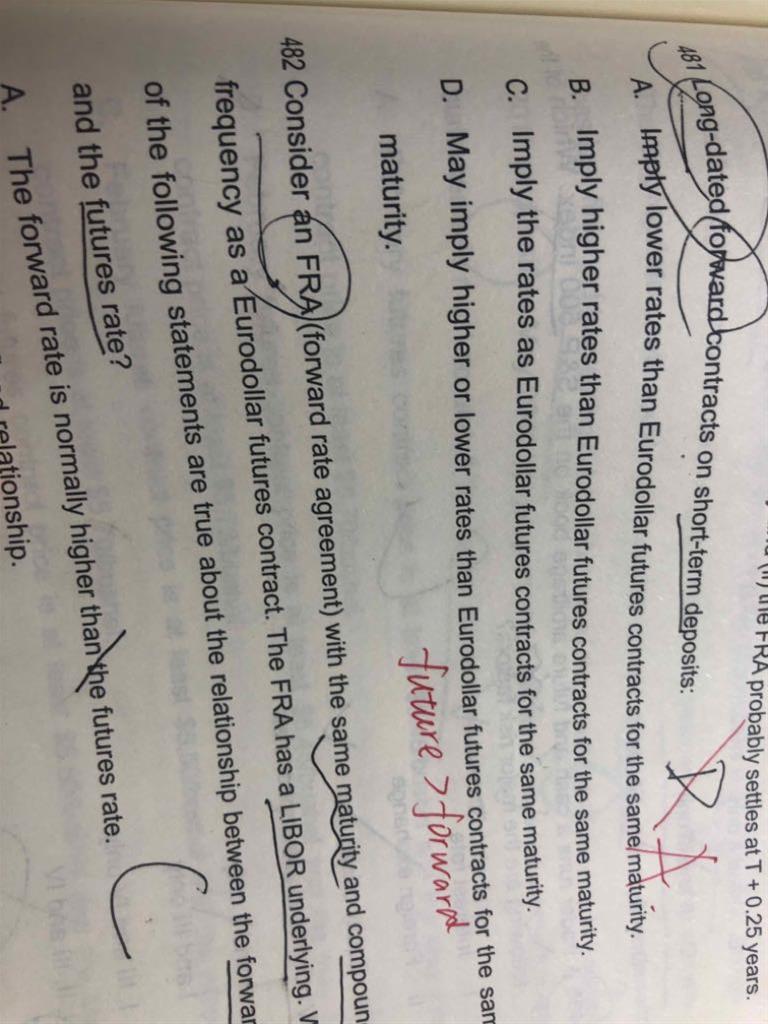 the FRA probably settles at T + 0.25 years.
481 Long-dated forward contracts on short-term deposits:
D A
A. Imply lower rates than Eurodollar futures contracts for the same maturity.
B. Imply higher rates than Eurodollar futures contracts for the same maturity.
C. Imply the rates as Eurodollar futures contracts for the same maturity.
D. May imply higher or lower rates than Eurodollar futures contracts for the
maturity.
future > forward
482 Consider an FRA (forward rate agreement) with the same maturity and
frequency as a Eurodollar futures contract. The FRA has a LIBOR underlying.
of the following statements are true about the relationship between the
and the futures rate?
C
A. The forward rate is normally higher than the futures rate.
relationship.